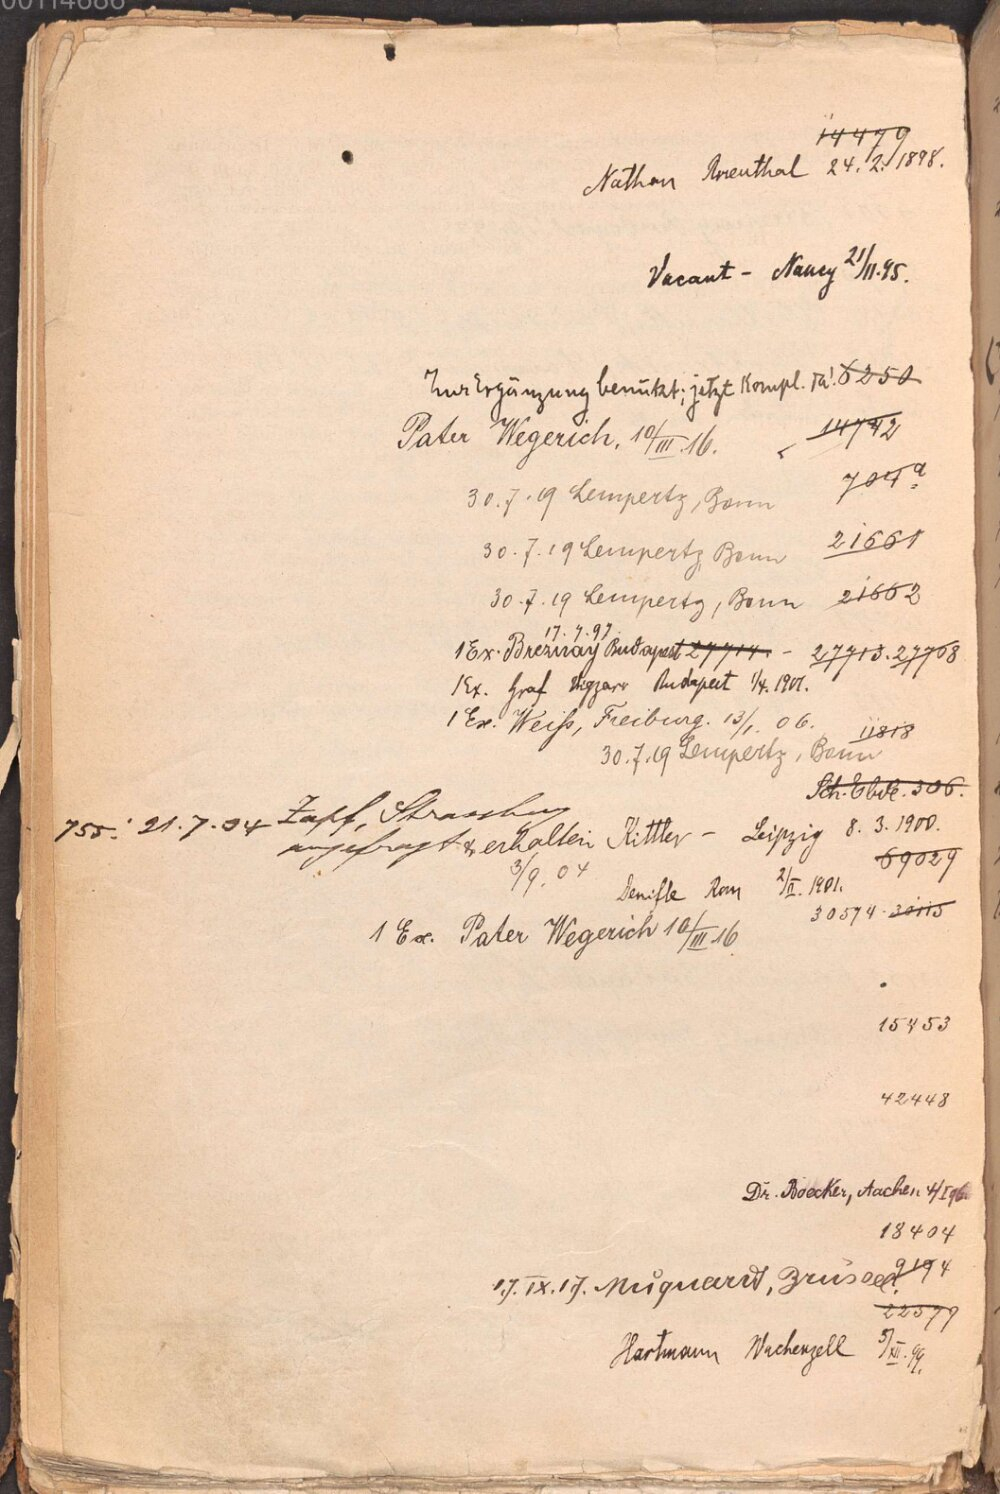 00114686
14479
Nathan Rosenthal 24.2.1898.
Vacant - Nancy 21/II.95.
Zur Ergänzung benützt; jetzt kompl. 6250
Pater Wegerich, 10/III.16. 14742
30.7.19 Lempertz, Bonn 704a
30.7.19 Lempertz Bonn 21661
30.7.19 Lempertz, Bonn 21662
17.7.97
1 Ex. Breznay Budapest 27714 - 27713.27768
1 Ex. Graf Budapest 1/4.1901.
1 Ex. Weiß, Freiburg. 13/1.06. 11818
30.7.19 Lempertz, Bonn
306.
755: 21.7.04 Zapf, Strassburg
angefragt & erhalten Kittler - Leipzig 8.3.1900.
3/9.04 69029
Denifle Rom 2/II.1901.
30574.30115
1 Ex. Pater Wegerich 10/III.16
15453
42448
Dr. Boecker, Aachen
18404
9194
17.IX.17. Muquardt, Brüssel.
22579
Hartmann 5/XII.99.